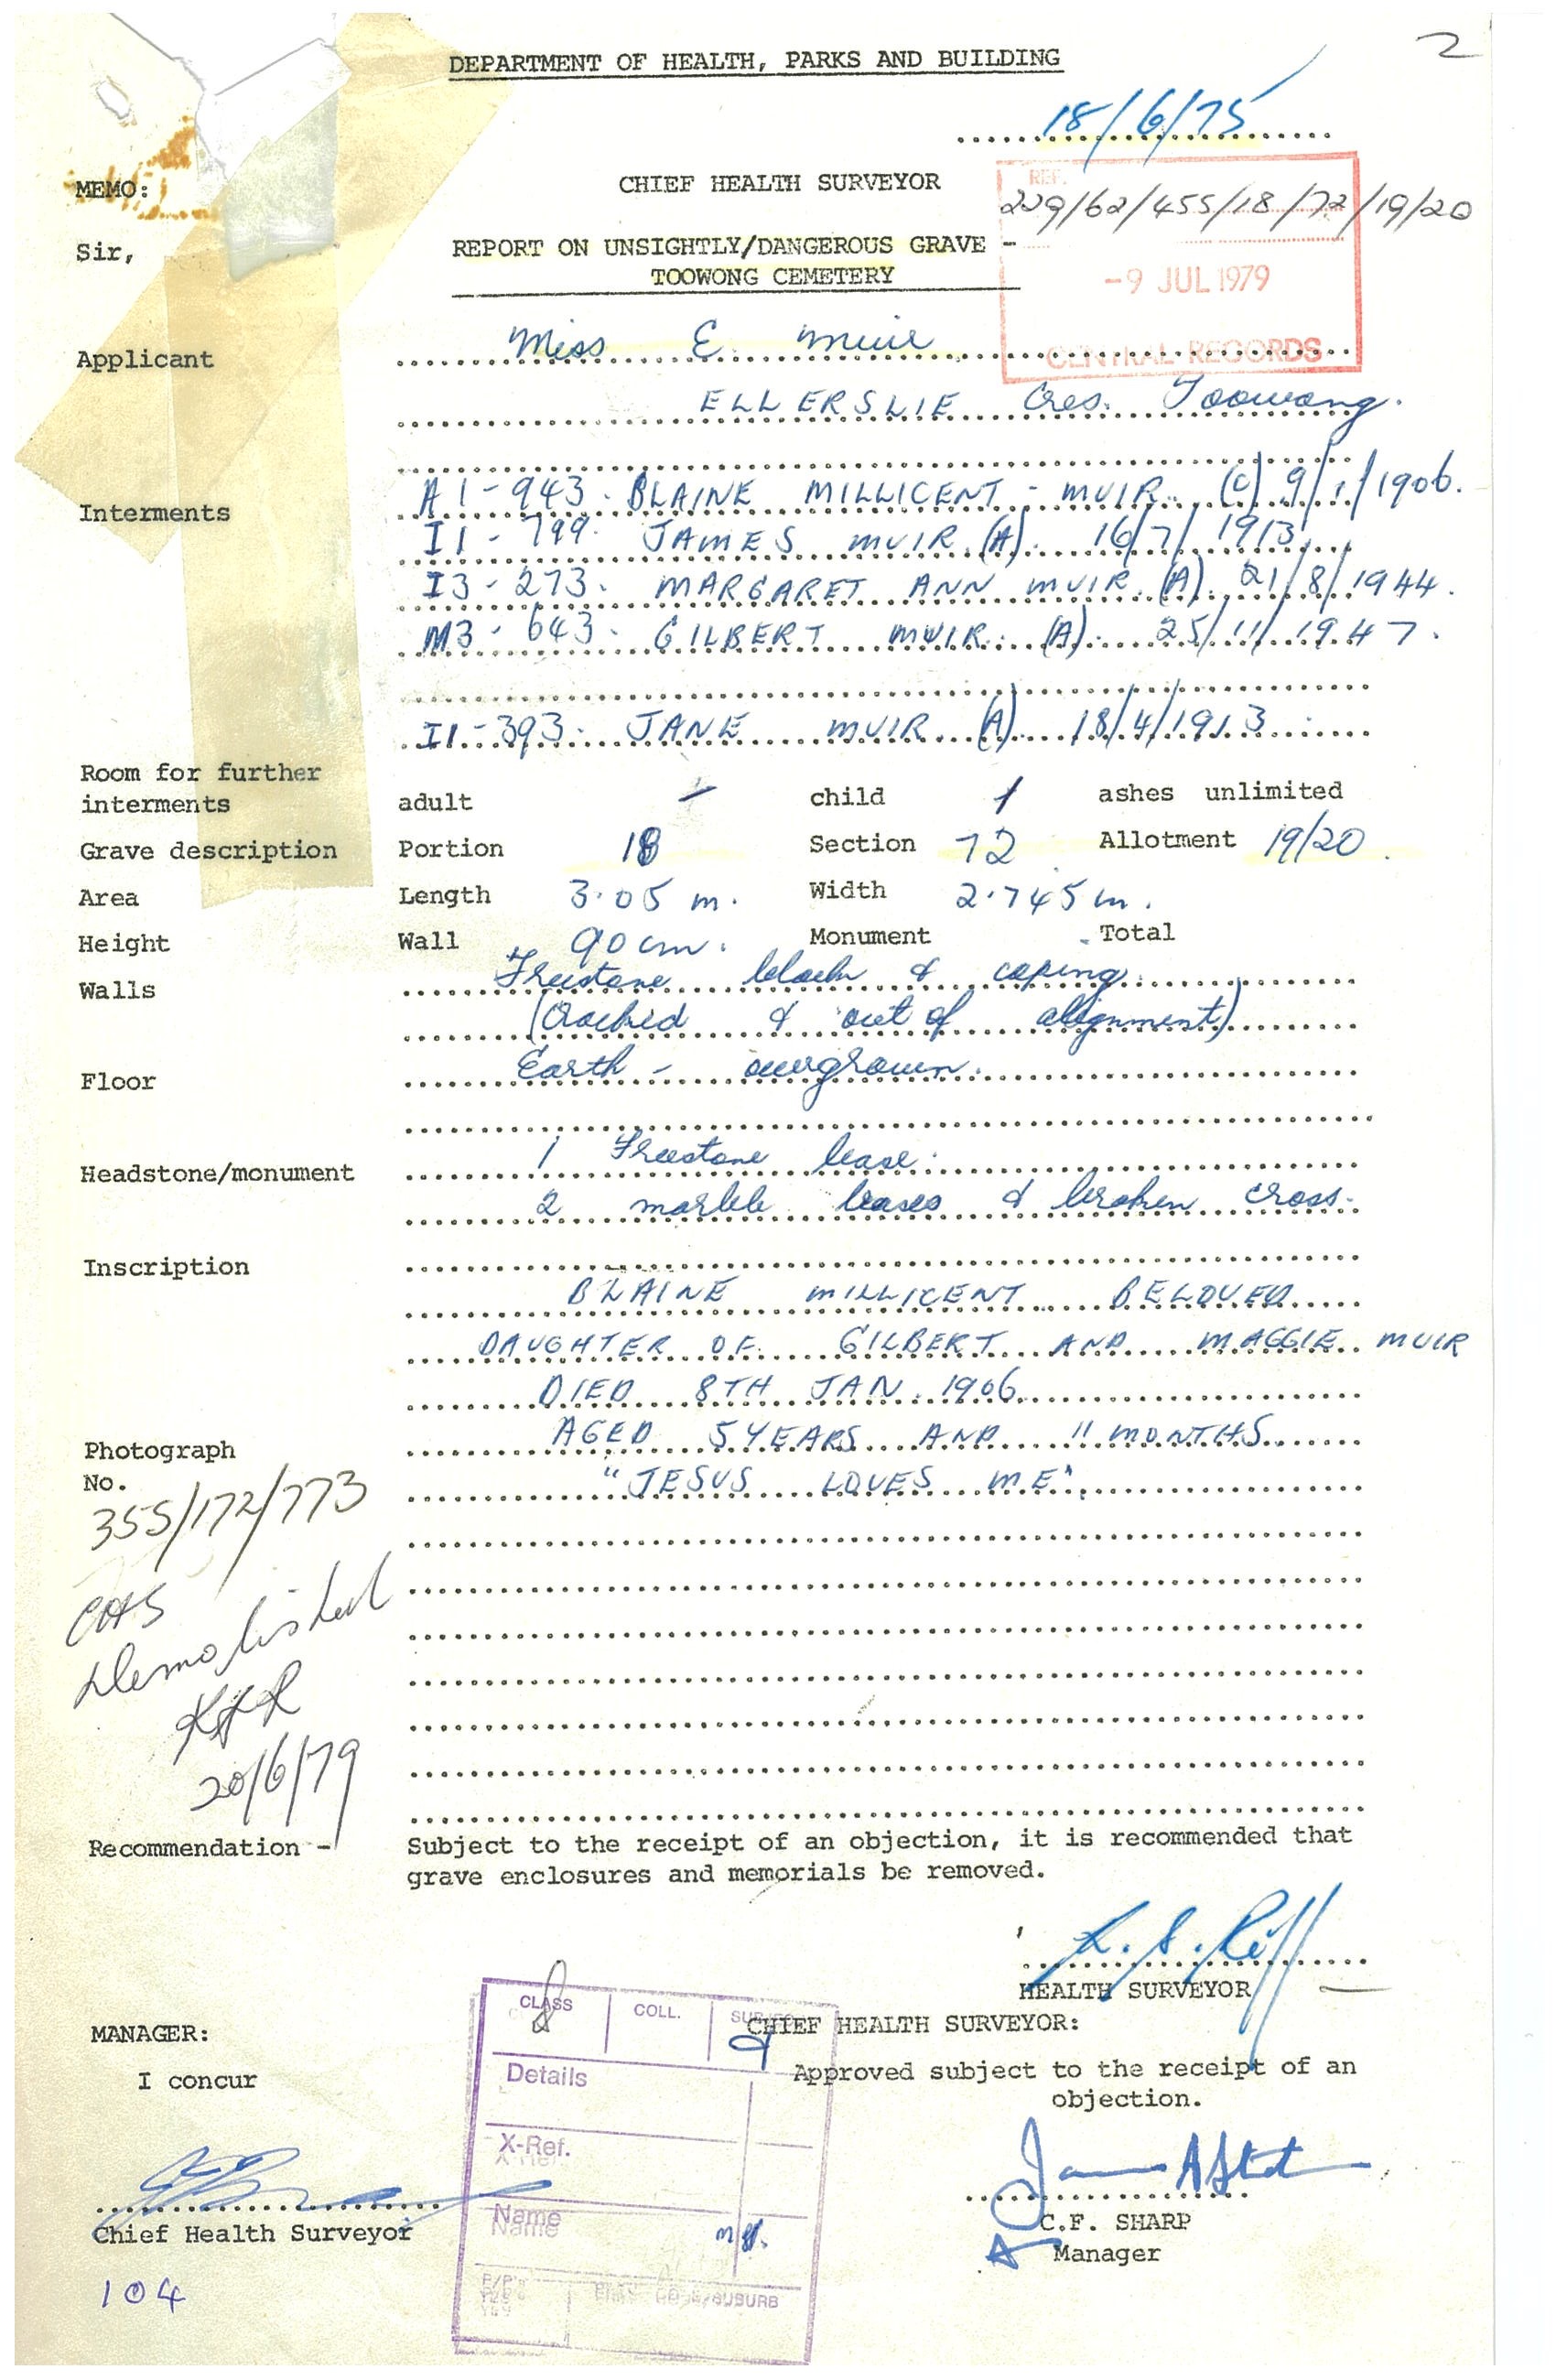 2
DEPARTMENT OF HEALTH, PARKS AND BUILDING
18/6/75
MEMO: CHIEF HEALTH SURVEYOR
REF.
209/62/455/18/72/19/20
Sir, REPORT ON UNSIGHTLY/DANGEROUS GRAVE -
TOOWONG CEMETERY
-9 JUL 1979
CENTRAL RECORDS
Applicant Miss E. Muir
ELLERSLIE Cres. Toowong.
Interments A1-943. BLAINE MILLICENT - MUIR. (C) 9/1/1906.
I1-799. JAMES MUIR (A). 16/7/1913
I3-273. MARGARET ANN MUIR (A). 21/8/1944.
M3-643. GILBERT MUIR. (A). 25/11/1947.
I1-393. JANE MUIR (A) 18/4/1913
Room for further
interments adult - child 1 ashes unlimited
Grave description Portion 18 Section 72 Allotment 19/20.
Area Length 3.05 m. Width 2.745 m.
Height Wall 90 cm. Monument Total
Walls Freestone block & coping.
(Cracked & out of alignment)
Floor Earth - overgrown.
Headstone/monument 1 Freestone base.
2 marble bases & broken cross.
Inscription
BLAINE MILLICENT BELOVED
DAUGHTER OF GILBERT AND MAGGIE MUIR
DIED 8TH JAN. 1906
AGED 5 YEARS AND 11 MONTHS
Photograph
No. "JESUS LOVES ME".
355/172/773
Demolished
20/6/79
Recommendation - Subject to the receipt of an objection, it is recommended that
grave enclosures and memorials be removed.
HEALTH SURVEYOR
CLASS COLL. SUBJECT
MANAGER: CHIEF HEALTH SURVEYOR:
Details
I concur Approved subject to the receipt of an
objection.
X-Ref.
Name
Chief Health Surveyor C.F. SHARP
Manager
104
SUBURB